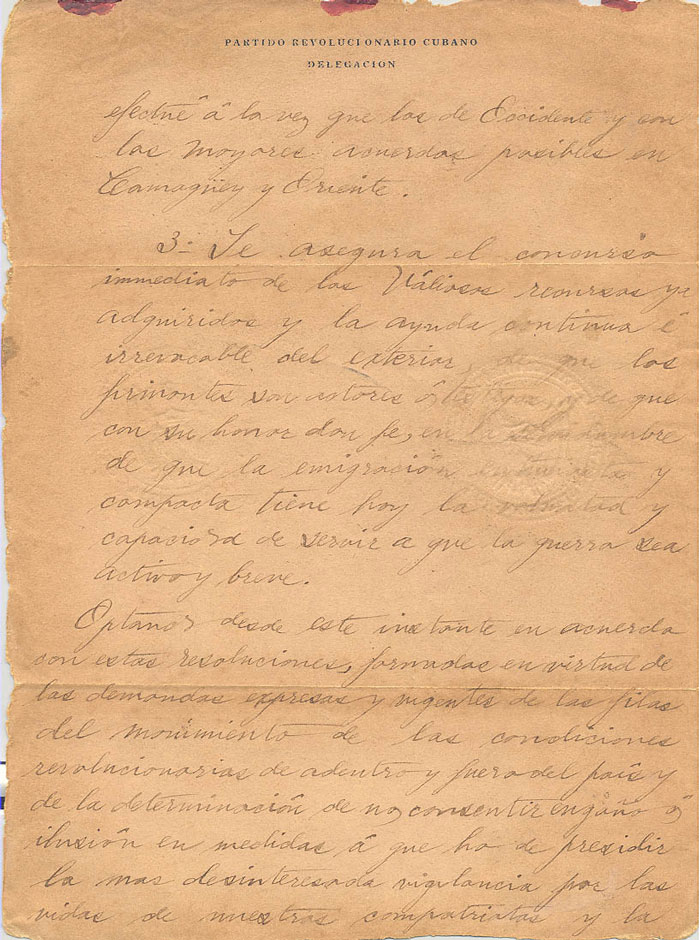 PARTIDO REVOLUCIONARIO CUBANO
DELEGACION
efectúe á la vez que los de Occidente y con
las mayores acuerdos posibles en
Camagüey y Oriente.
3ª Se asegura el concurso
immediato de los Váliosos recursos ya
adquiridos y la ayuda continua é
irrevocable del exterior, de que los
firmantes son actores ó testigos, y de que
con su honor dan fe, en la
de que la emigración entusiasta y
compacta tiene hoy la voluntad y
capacidad de servir a que la guerra sea
activa y breve.
desde este instante en acuerdo
con estas resoluciones, formadas en virtud de
las demandas expresas y urgentes de las filas
del movimiento de las condiciones
revolucionarias de adentro y fuera del país y
de la determinación de no consentir engaño ó
ilusión en medidas á que ha de presidir
la mas desinteresada vigilancia por las
vidas de nuestros compatriotas y la